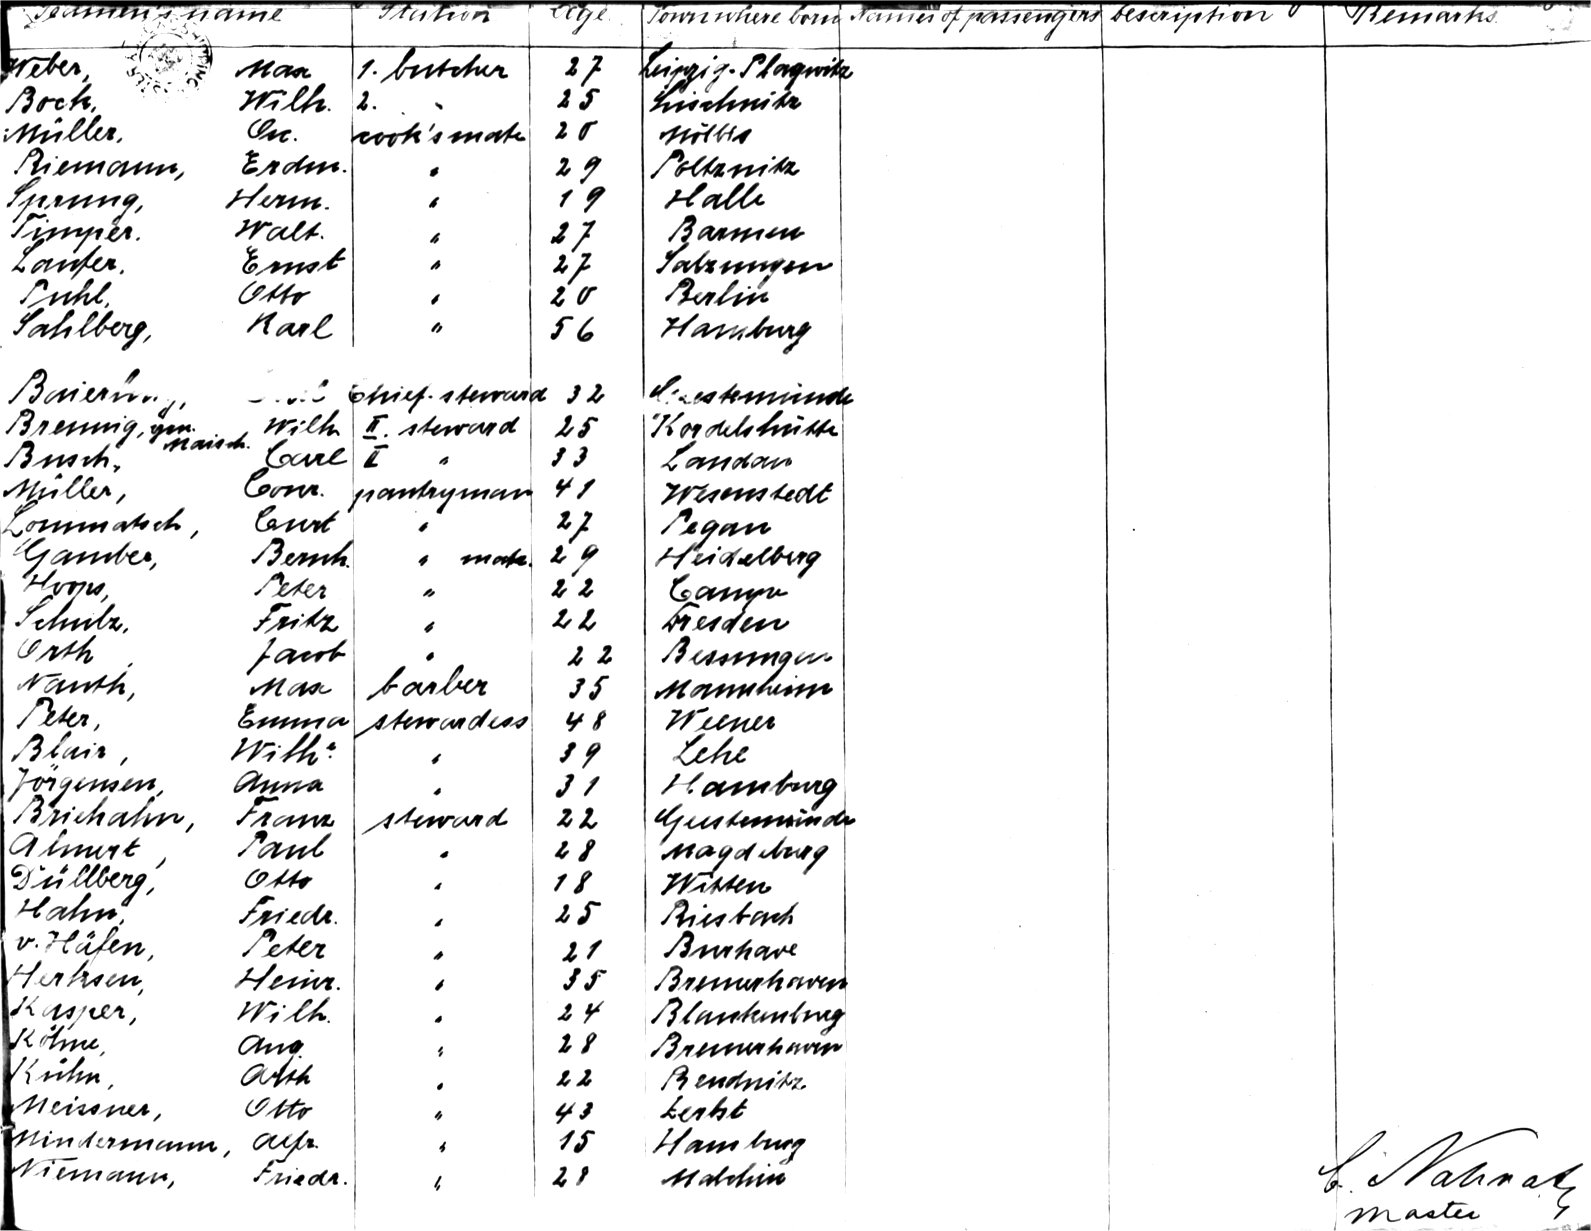 Seamen's name Station Age Town where born Names of passengers Description Remarks
Weber, Max 1. butcher 27 Leipzig-Plagwitz
Bock, Wilh. 2. " 25
Müller, Osc. cook's mate 20 Mölbis
Riemann, Erdm. " 29 Poltznitz
Sprung, Herm. " 19 Halle
Timper. Walt. " 27 Barmen
Laufer, Ernst " 27 Salzungen
Puhl, Otto " 20 Berlin
Sahlberg, Karl " 56 Hamburg
Chief-steward 32 Geestemünde
Brennig, gen. Maisch. Wilh II. steward 25 Kordelshütte
Busch, Carl II " 33 Landau
Müller, Conr. pantryman 41 Wesenstedt
Lommatsch, Curt " 27 Pegau
Gamber, Bernh. " mate. 29 Heidelberg
Hoops, Peter " 22 Campe
Schulz, Fritz " 22 Dresden
Orth, Jacob " 22 Bessungen
Nauth, Max barber 35 Mannheim
Peter, Emma stewardess 48 Weener
Blair, Wilhe. " 39 Lehe
Jörgensen, Anna " 31 Hamburg
Brichahn, Franz steward 22 Geestemünde
Almert, Paul " 28 Magdeburg
Düllberg, Otto " 18 Witten
Hahn, Friedr. " 25 Riesbach
v. Häfen, Peter " 21 Burhave
Herksen, Heinr. " 35 Bremerhaven
Kasper, Wilh. " 24 Blankenburg
Köhne, Aug. " 28 Bremerhaven
Kühn, Arth " 22 Reudnitz
Meissner, Otto " 43 Zerbst
Mindermann, Alfr. " 15 Hamburg
Niemann, Friedr. " 28 Malchin
C. Nahrath
Master